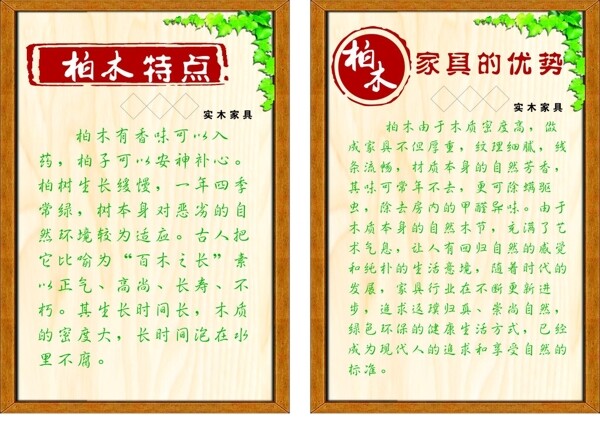 柏木特点
实木家具
柏木有香味可以入
药，柏子可以安神补心。
柏树生长缓慢，一年四季
常绿，树本身对恶劣的自
然环境较为适应。古人把
它比喻为“百木之长”素
以正气、高尚、长寿、不
朽。其生长时间长，木质
的密度大，长时间泡在水
里不腐。
柏木
家具的优势
实木家具
柏木由于木质密度高，做
成家具不但厚重，纹理细腻，线
条流畅，材质本身的自然芳香，
其味可常年不去，更可除螨驱
虫，除去房内的甲醛异味。由于
木质本身的自然木节，充满了艺
术气息，让人有回归自然的感觉
和纯朴的生活意境，随着时代的
发展，家具行业在不断更新进
步，追求返璞归真、崇尚自然，
绿色环保的健康生活方式，已经
成为现代人的追求和享受自然的
标准。